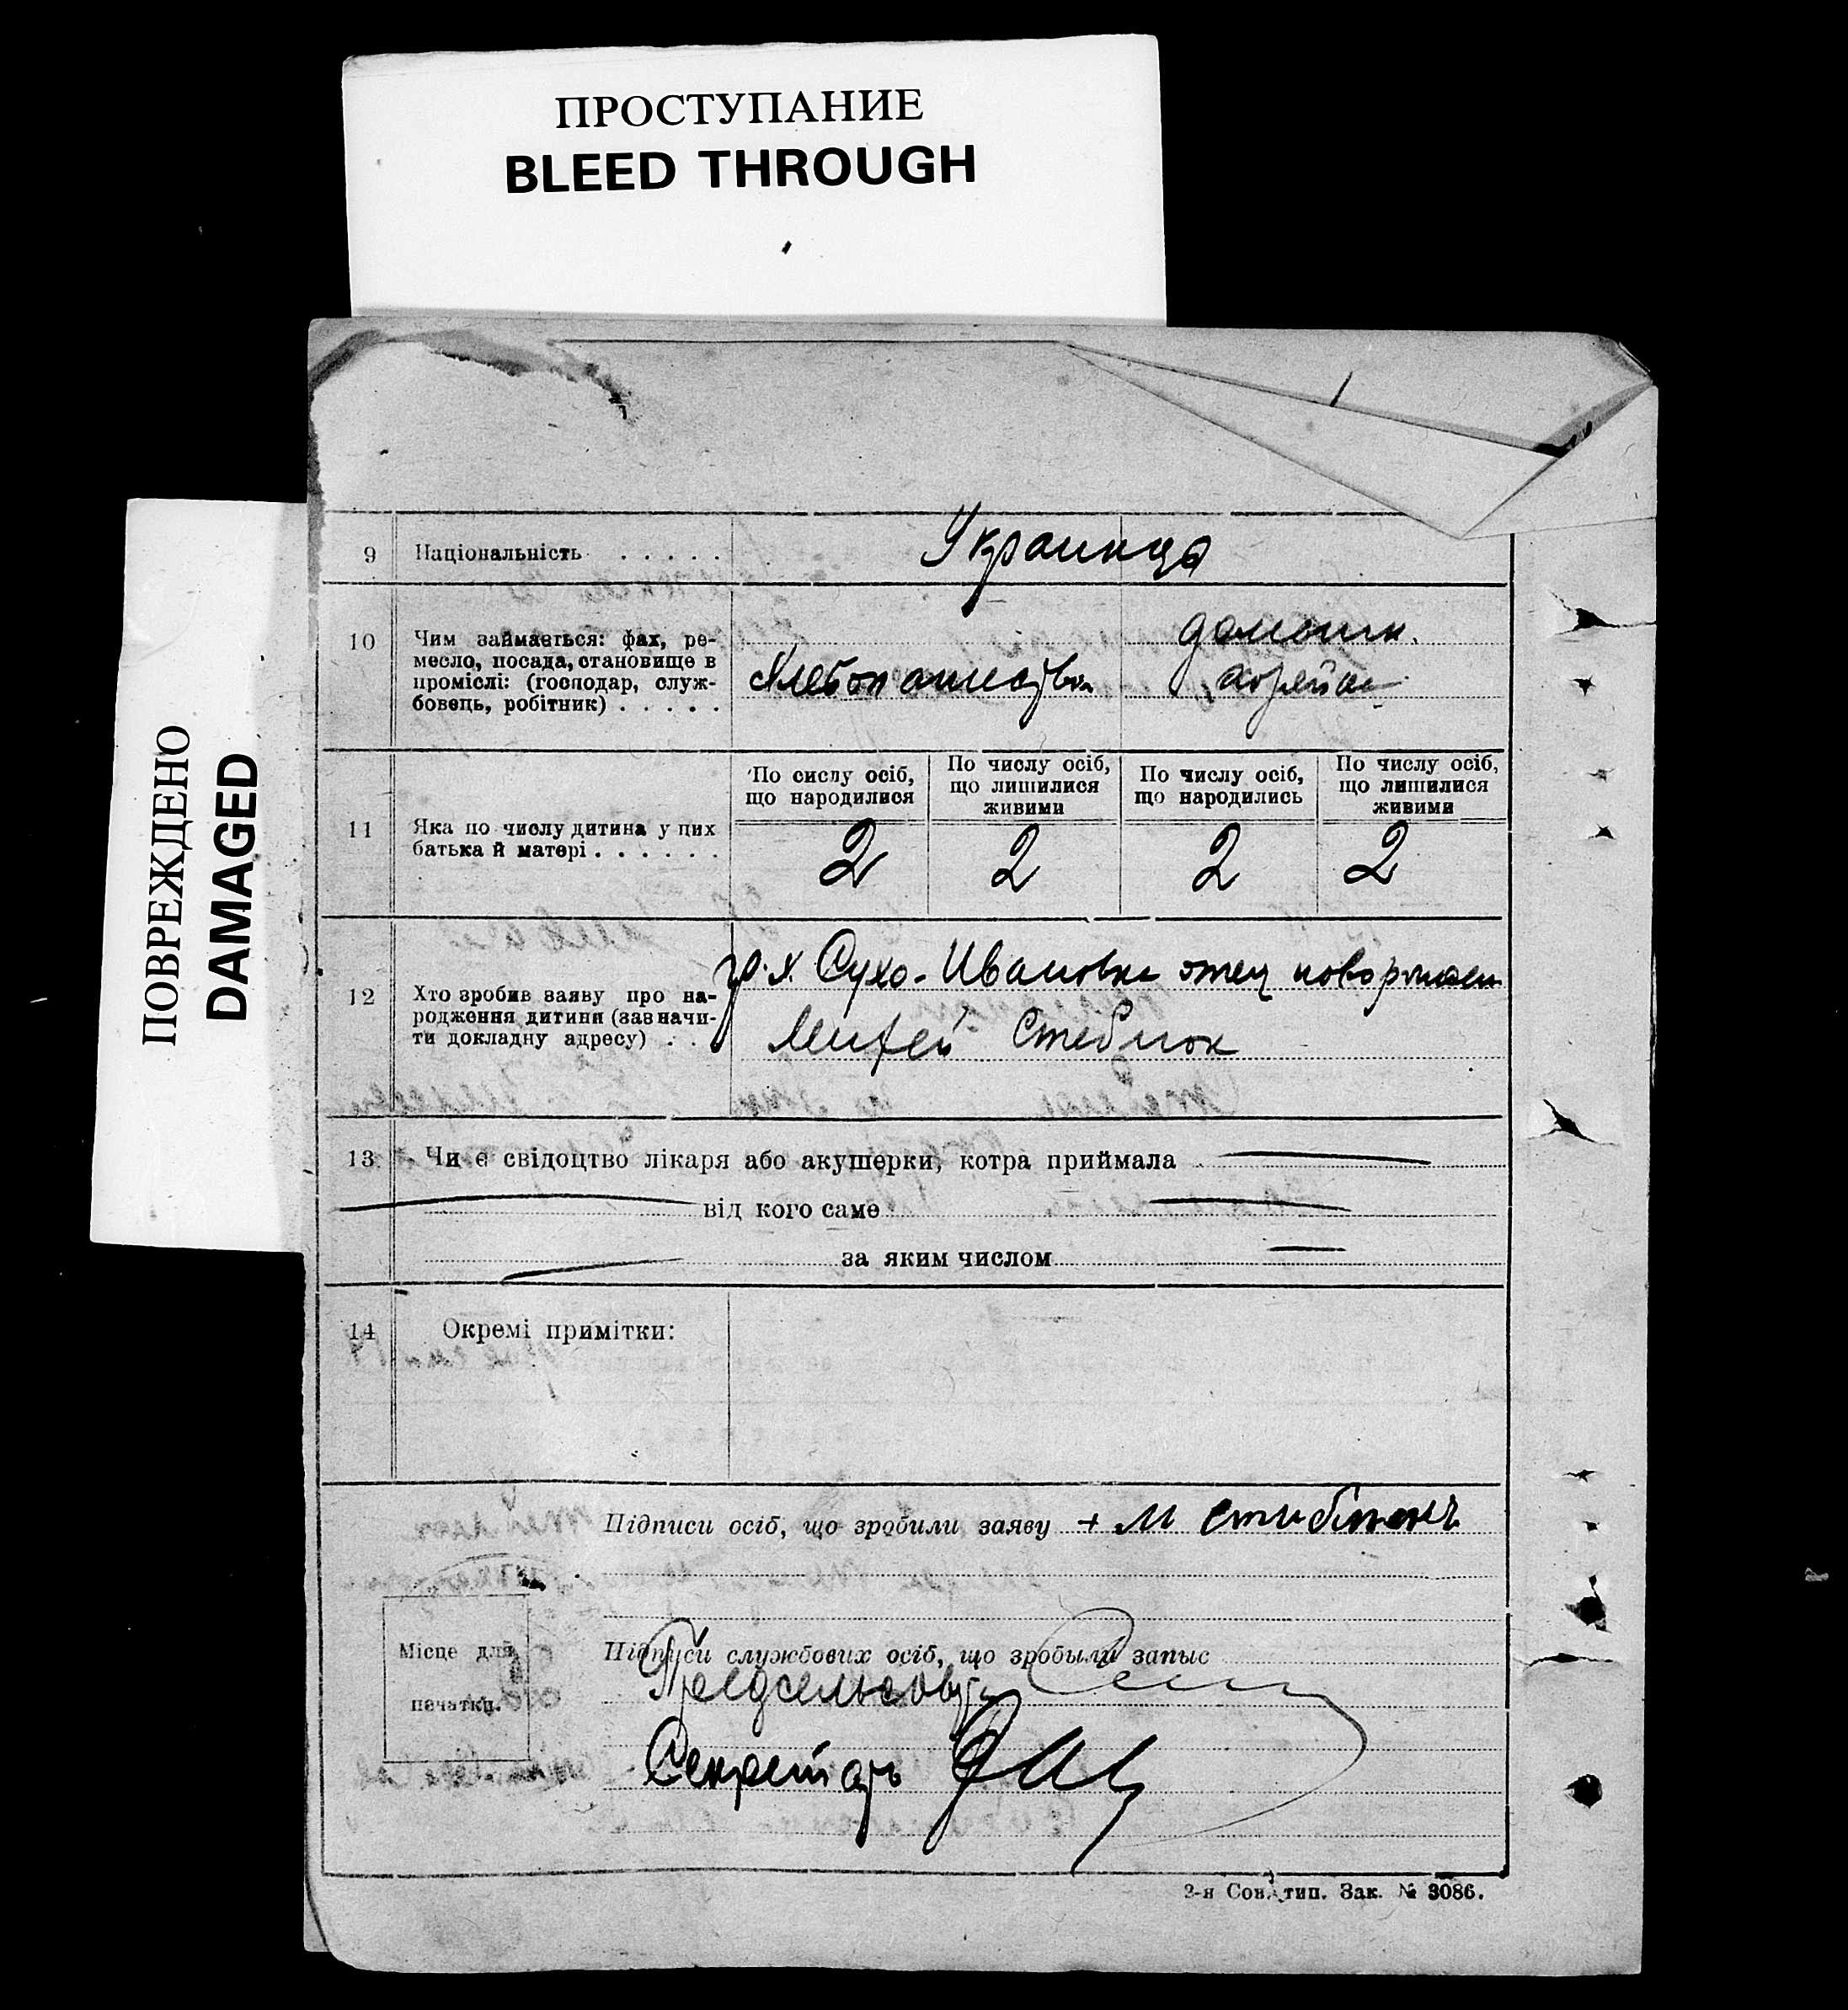 ПРОСТУПАНИЕ
BLEED THROUGH
ПОВРЕЖДЕНО
DAMAGED
9 Національність . . . . . Украинцы
10 Чим займається: фах, ре-
месло, посада, становище в
проміслі: (господар, служ-
бовець, робітник) . . . . .
Хлебопашество
домашн.
По сислу осіб,
що народилися
По числу осіб,
що лишилися
живими
По числу осіб,
що народились
По числу осіб,
що лишилися
живими
11 Яка по числу дитина у цих
батька й матері . . . . . .
2 2 2 2
12 Хто зробив заяву про на-
родження дитини (зазначи-
ти докладну адресу) . . .
гр. х. Сухо-Ивановка отец
Михей Стеблюк
13 Чи є свідоцтво лікаря або акушерки, котра приймала
від кого саме
за яким числом
14 Окремі примітки:
Підписи осіб, що зробили заяву + М
Місце для
печатки.
Підписи службових осіб, що зробылі запыс
Предсельсовета
Секретарь
2-я Сов. тип. Зак. № 3086.